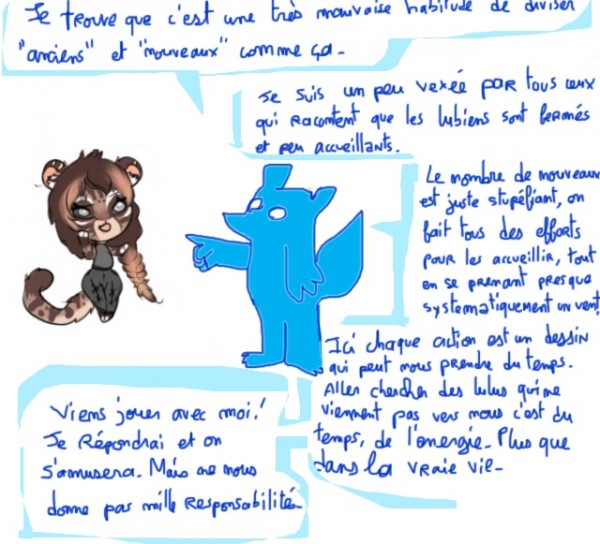 Je trouve que c'est une très mauvaise habitude de diviser
"anciens" et "nouveaux" comme ça.
Je suis un peu vexée par tous ceux
qui racontent que les lubiens sont fermés
et peu accueillants.
Le nombre de nouveaux
est juste stupéfiant, on
fait tous des efforts
pour les accueillir, tout
en se prenant presque
systématiquement un vent!
Ici chaque action est un dessin
qui peut nous prendre du temps.
Aller chercher des lulus qui ne
viennent pas vers nous c'est du
temps, de l'énergie. Plus que
dans la vraie vie.
Viens jouer avec moi!
Je répondrai et on
s'amusera. Mais ne nous
donne pas mille responsabilité.